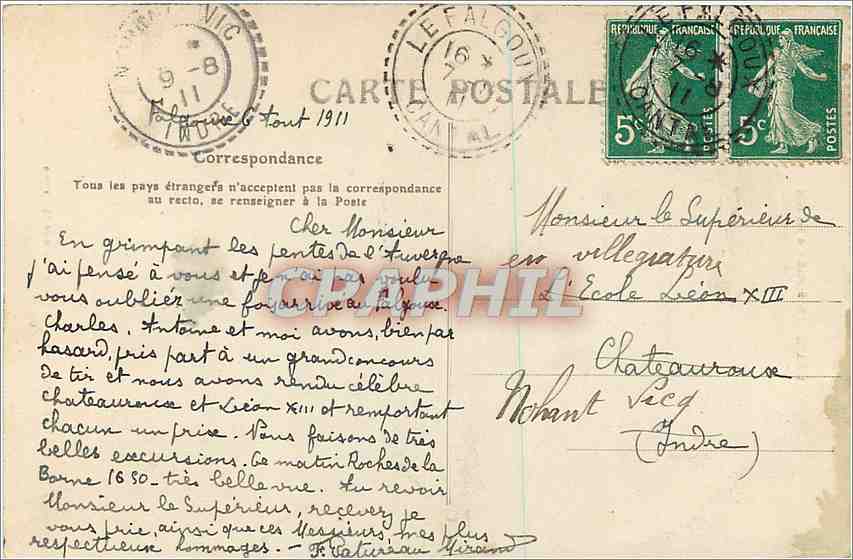 NOHANT-VIC
9-8
11
INDRE
LE FALGOUX
16 *
7-8
11
CANTAL
LE FALGOUX
16 *
7-8
11
CANTAL
REPUBLIQUE FRANÇAISE
5c
POSTES
REPUBLIQUE FRANÇAISE
5c
POSTES
CARTE POSTALE
Falgoux 6 Aout 1911
Correspondance
Tous les pays étrangers n'acceptent pas la correspondance
au recto, se renseigner à la Poste
Cher Monsieur
En grimpant les pentes de l'Auvergne
j'ai pensé à vous et je n'ai pas voulu
vous oublier une fois arrivé au Falgoux.
Charles, Antoine et moi avons, bien par
hasard, pris part à un grand concours
de tir et nous avons rendu célèbre
Chateauroux et Léon XIII et remportant
chacun un prix. Nous faisons de très
belles excursions. Ce matin Roches de la
Borne 1650 - très belle vue. Au revoir
Monsieur le Supérieur, recevez je
vous prie, ainsi que ces Messieurs, mes plus
respectueux hommages. - F. Patureau Mirand
Monsieur le Supérieur de
en villegiature
L'Ecole Léon XIII
Chateauroux
Nohant Vicq
(Indre)
CPAPHIL